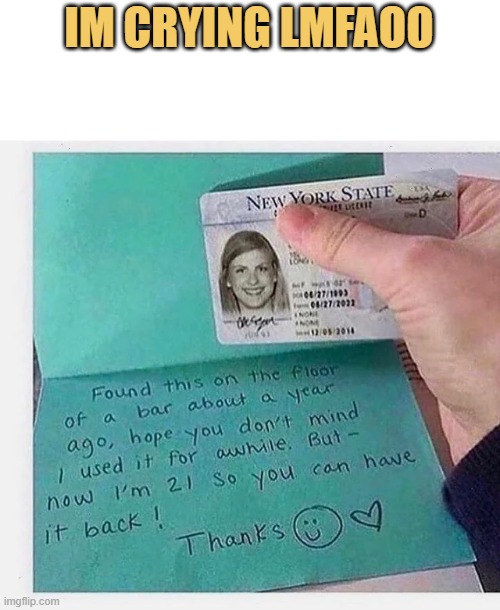 IM CRYING LMFAOO
NEW YORK STATE
USA
D
06/27/1993
06/27/2022
NONE
NONE
12/05/2016
Found this on the floor
of a bar about a year
ago, hope you don't mind
I used it for awhile. But -
now I'm 21 so you can have
it back!
Thanks
imgflip.com